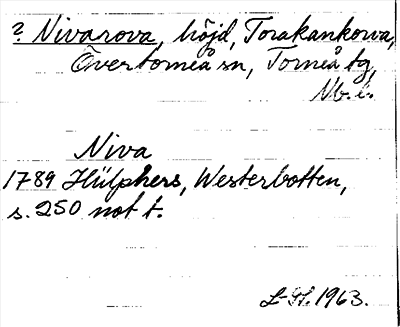 ? Nivarova, höjd, Torakankorva,
Övertorneå sn, Torneå tg,
Nb. l.
Niva
1789 Hülphers, Westerbotten,
s. 250 not t.
1963.